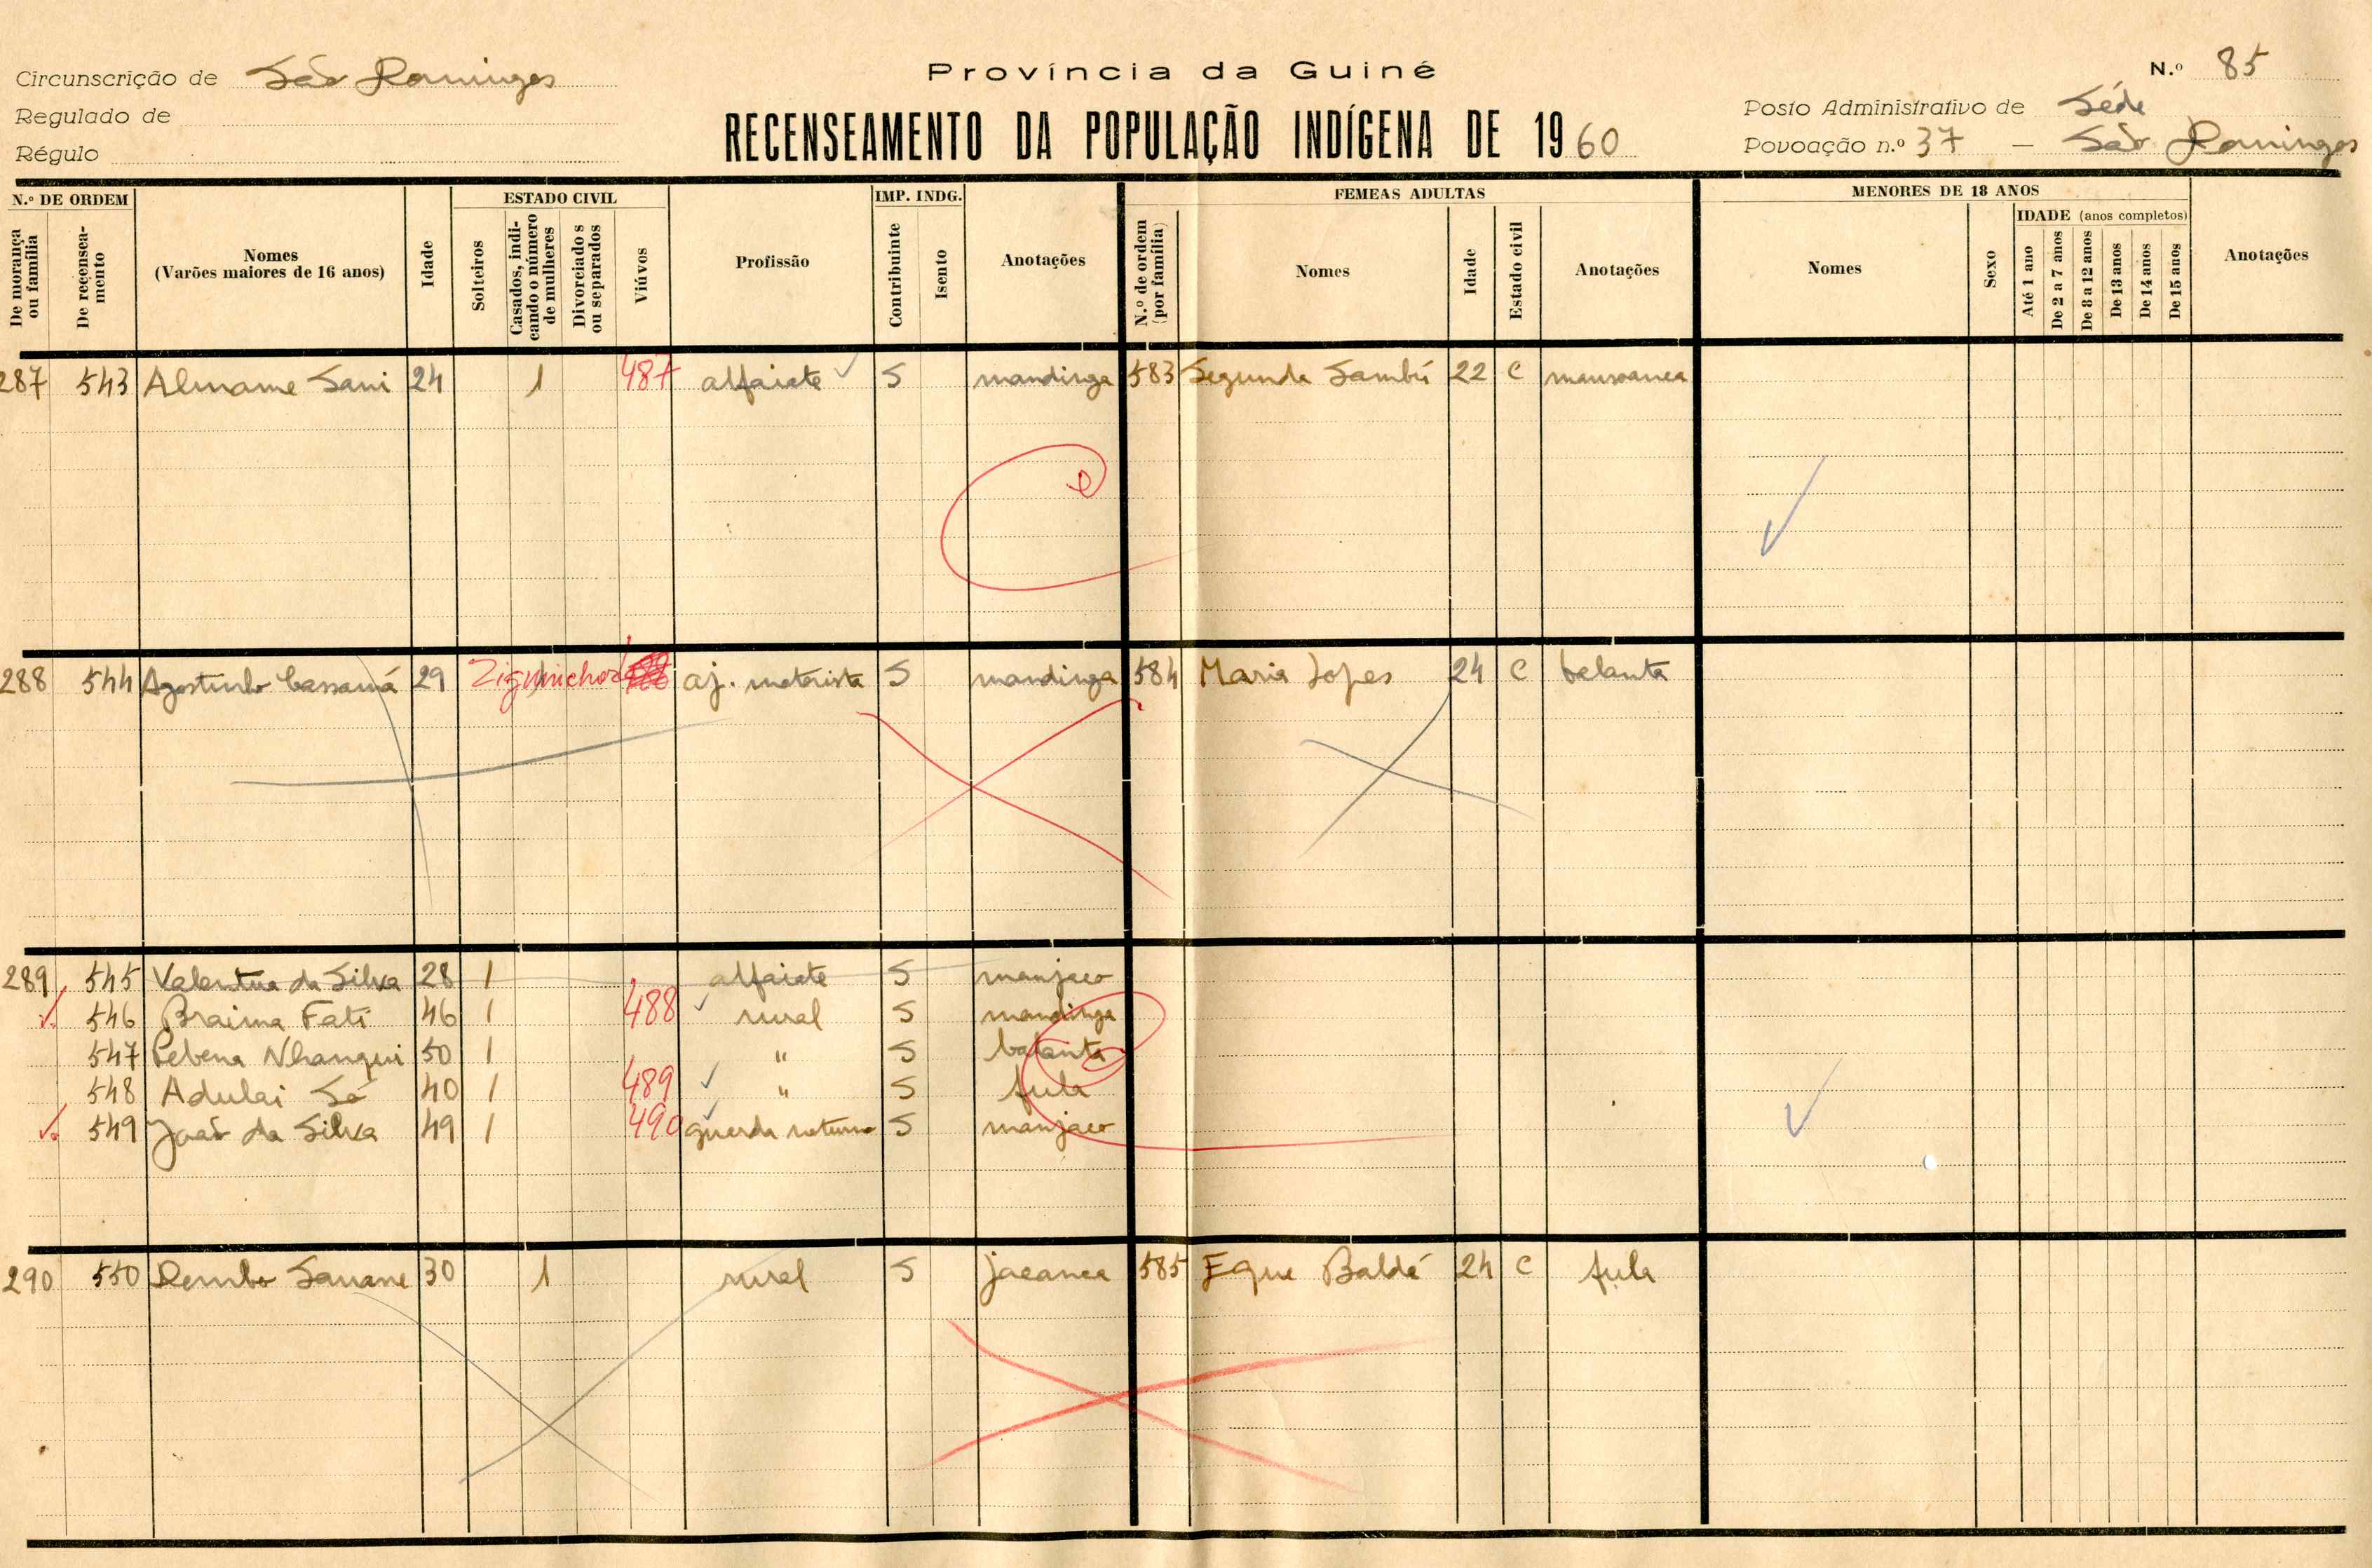 Circunscrição de São Domingos
Regulado de
Régulo
Província da Guiné
RECENSEAMENTO DA POPULAÇÃO INDÍGENA DE 1960
N.º 85
Posto Administrativo de Séde
Povoação n.º 37 – São Domingos
N.º DE ORDEM
De morança ou família
De recenseamento
Nomes
(Varões maiores de 16 anos)
Idade
ESTADO CIVIL
Solteiros
Casados, indicando o número de mulheres
Divorciados ou separados
Viúvos
Profissão
IMP. INDG.
Contribuinte
Isento
Anotações
FEMEAS ADULTAS
N.º de ordem (por família)
Nomes
Idade
Estado civil
Anotações
MENORES DE 18 ANOS
Nomes
Sexo
IDADE (anos completos)
Até 1 ano
De 2 a 7 anos
De 8 a 12 anos
De 13 anos
De 14 anos
De 15 anos
Anotações
287 543 Almame Sani 24 1 487 alfaiate S mandinga 583 Segunda Sambú 22 C mansoanca
288 544 Agostinho Cassamá 29 Ziguinchor aj. motorista S mandinga 584 Maria Lopes 24 C balanta
289 545 da Silva 28 1 alfaiate S manjaco
546 Braima Fati 46 1 488 rural S mandinga
547 Nhanqui 50 1 " S balanta
548 Adulai Só 40 1 489 " S fula
549 João da Silva 49 1 490 guarda noturno S manjaco
290 550 Sauane 30 1 rural S jacanca 585 Egue Baldé 24 C fula